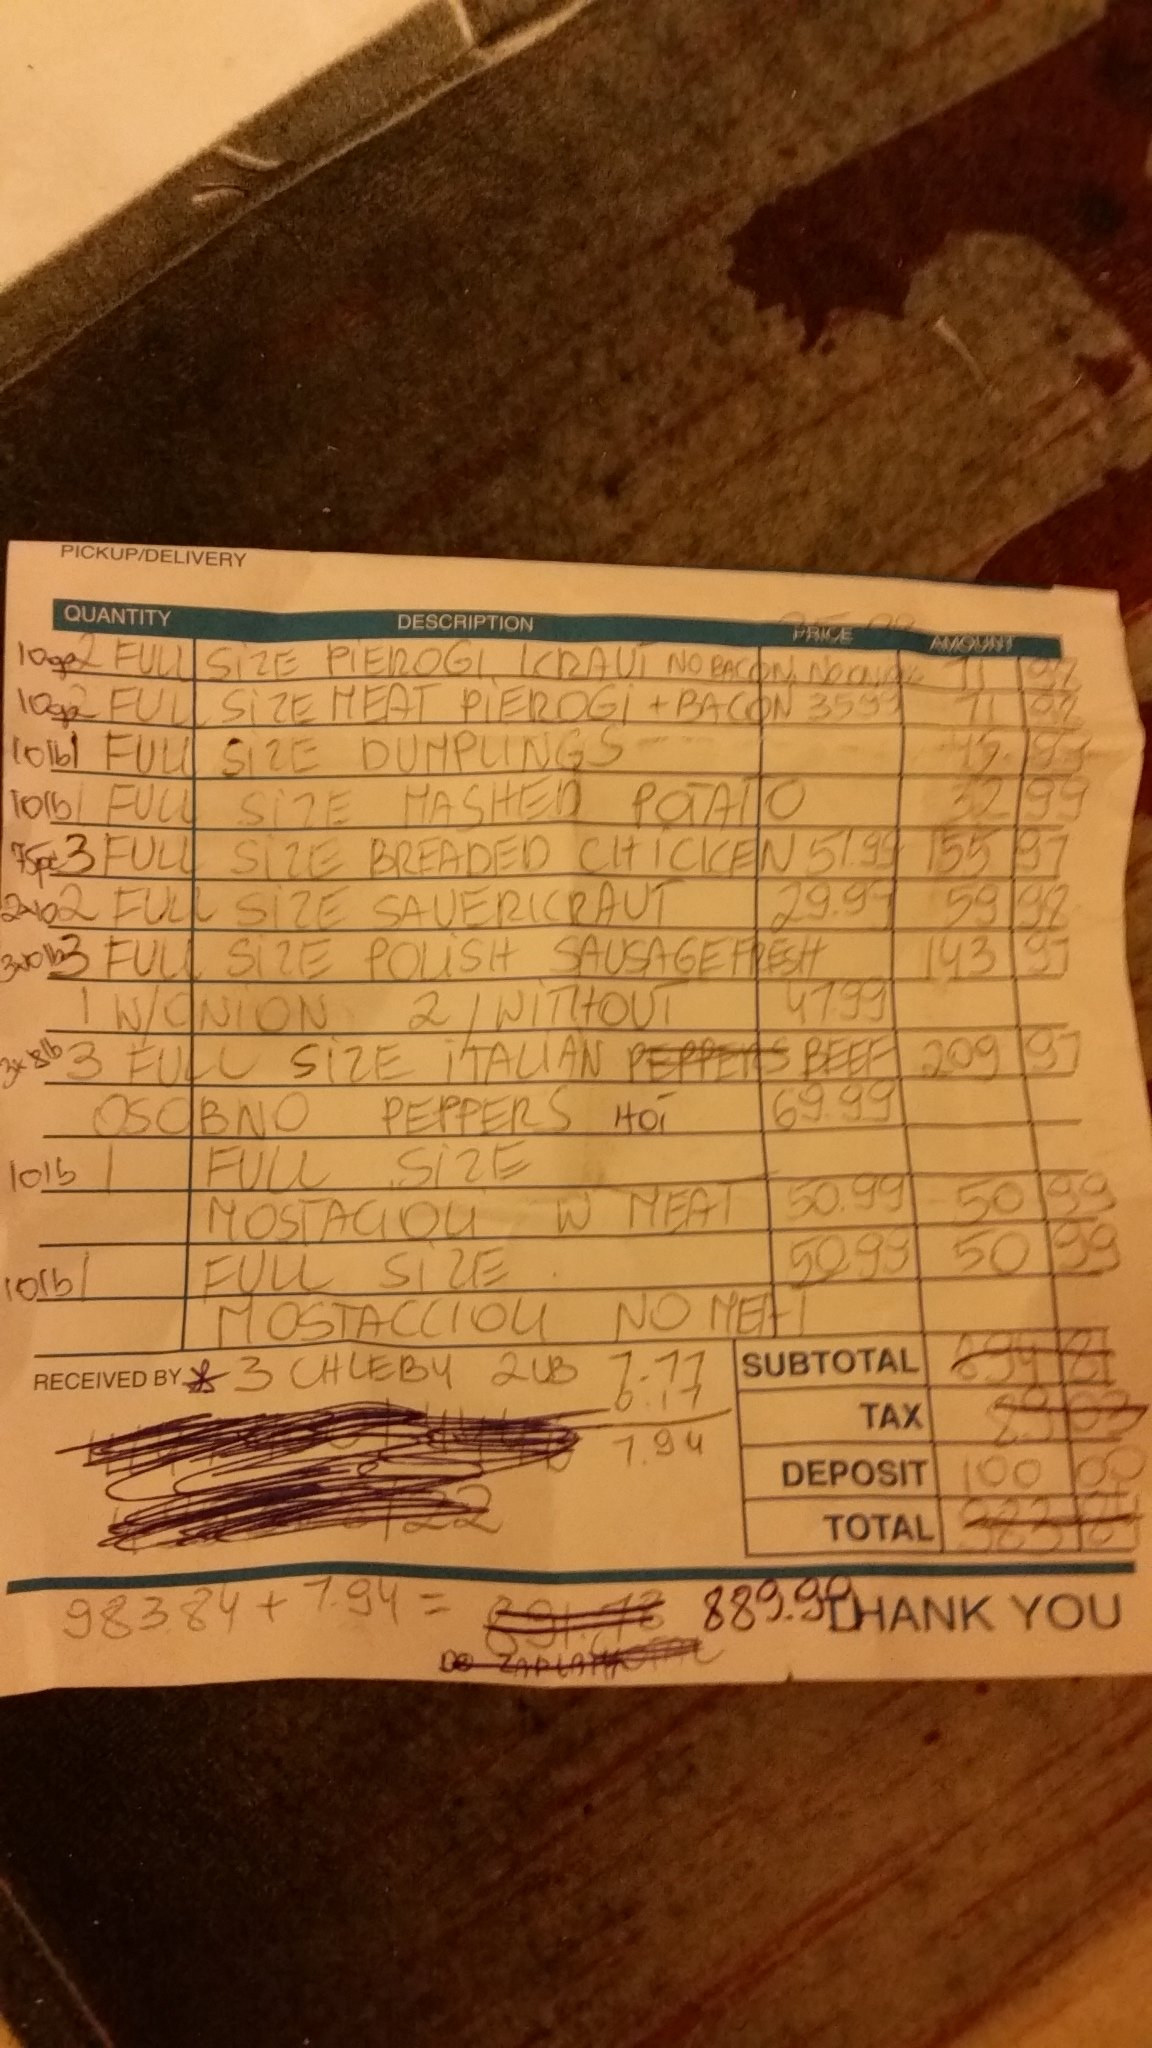 PICKUP/DELIVERY
QUANTITY DESCRIPTION PRICE AMOUNT
2 FULL SIZE PIEROGI KRAUT NO BACON, NO 71 98
2 FULL SIZE MEAT PIEROGI + BACON 35 99 71 98
10lb 1 FULL SIZE DUMPLINGS 45 99
10lb 1 FULL SIZE MASHED POTATO 32 99
75pc 3 FULL SIZE BREADED CHICKEN 51.99 155 97
2x10 2 FULL SIZE SAUERKRAUT 29.99 59 98
3x10lb 3 FULL SIZE POLISH SAUSAGE FRESH 143 97
1 W/ONION 2 / WITHOUT 47.99
3x8lb 3 FULL SIZE ITALIAN PEPPERS BEEF 209 97
OSOBNO PEPPERS HOT 69.99
10lb 1 FULL SIZE
MOSTACIOLI W MEAT 50.99 50 99
10lb 1 FULL SIZE 50.99 50 99
MOSTACCIOLI NO MEAT
RECEIVED BY * 3 CHLEBY 2LB 7.77
0.17
7.94
SUBTOTAL 894 81
TAX 89 03
DEPOSIT 100 00
TOTAL 983 84
983.84 + 7.94 = 891.78 889.99 THANK YOU
DO ZAPŁATY